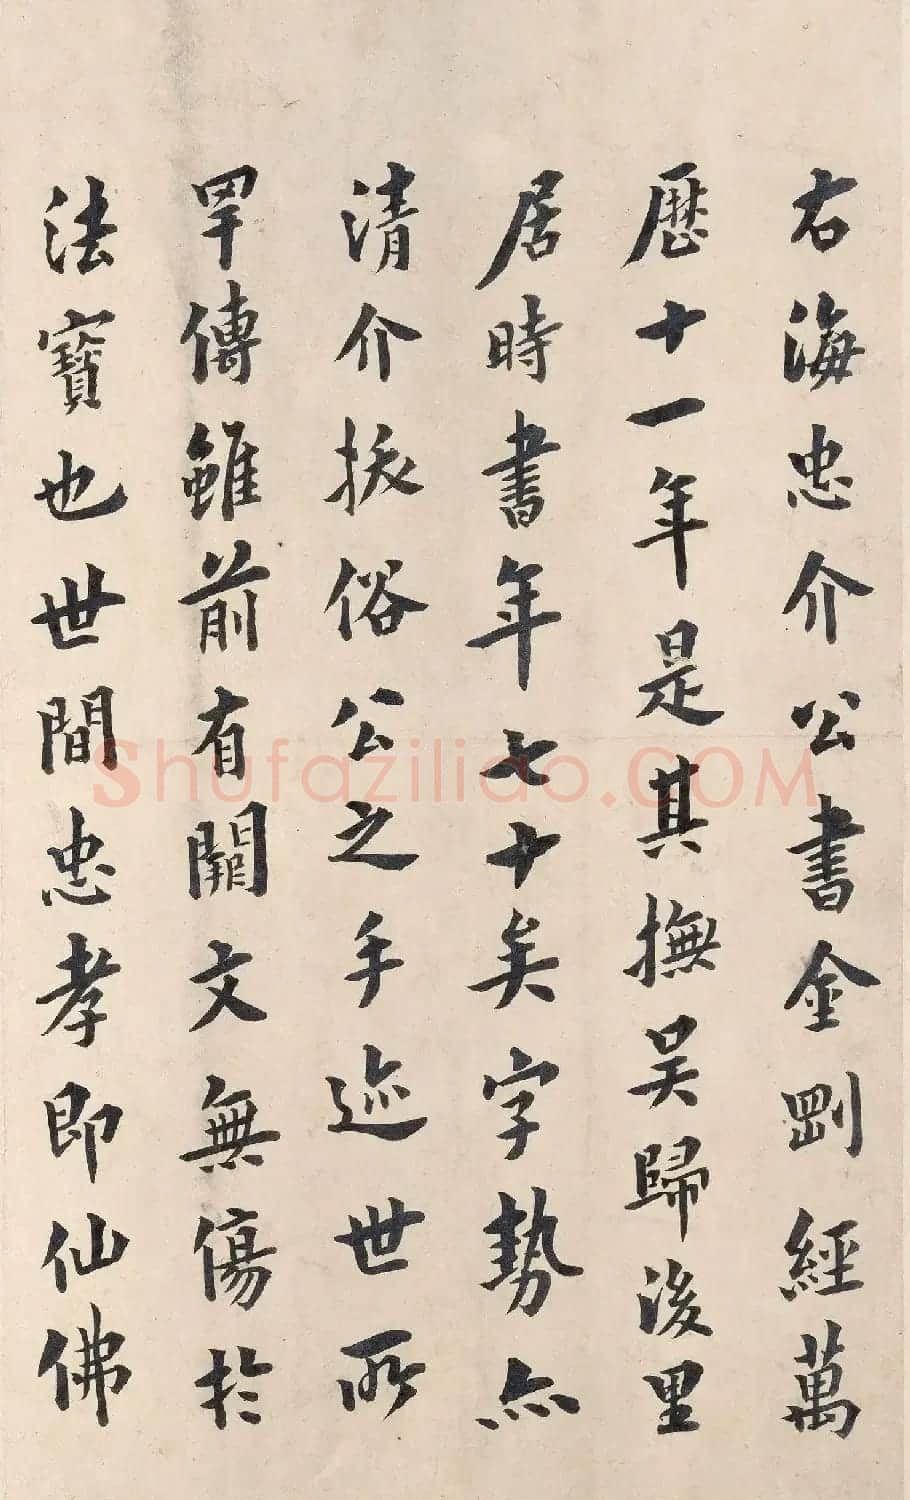 右海忠介公書金剛經萬
歷十一年是其撫吴歸後里
居時書年七十矣字勢亦
清介拔俗公之手迹世所
罕傳雖前有闕文無傷於
法寶也世間忠孝即仙佛
Shufaziliao.COM